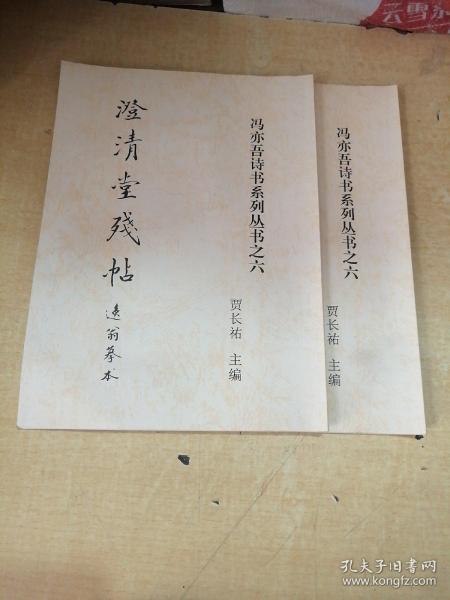 澄清堂残帖
逸翁摹本
冯亦吾诗书系列丛书之六
贾长祐 主编
冯亦吾诗书系列丛书之六
贾长祐 主编
孔夫子旧书网
www.kongfz.com